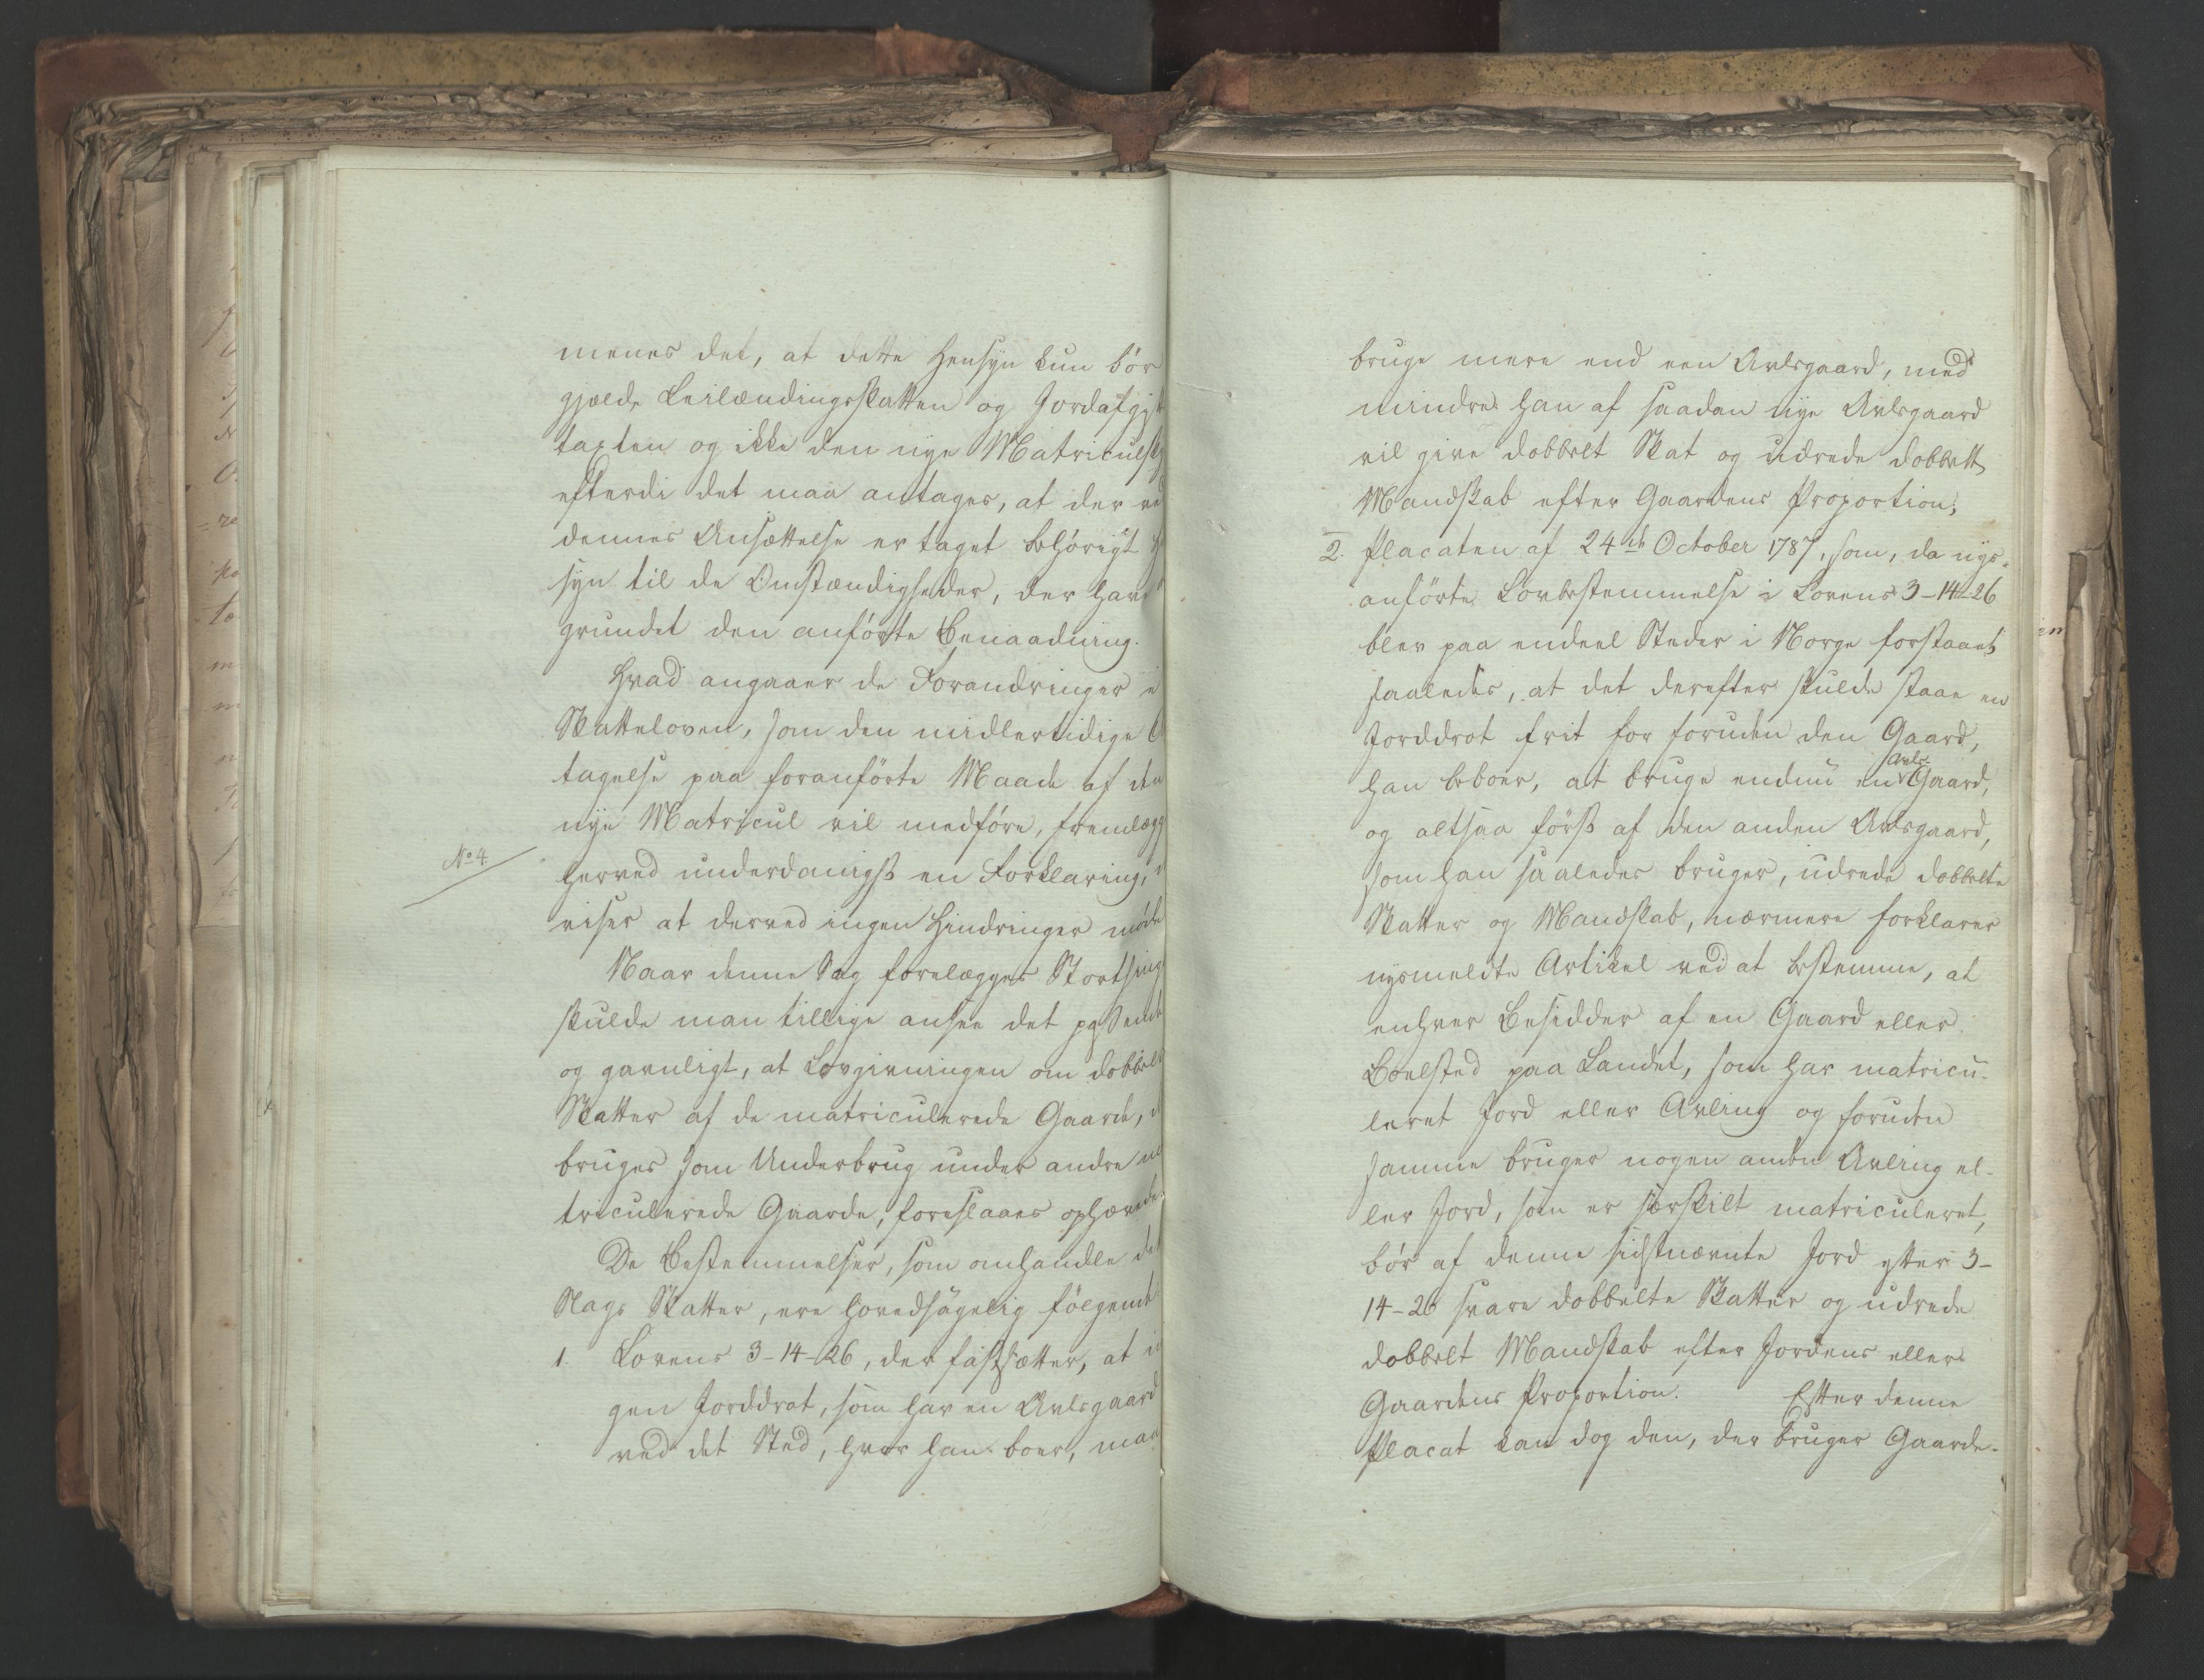 menes det, at dette Hensyn kun bør
gjelde Leilændingsskatten og Jordafgift
taxten og ikke den nye Matriculsk
efterdi det maa antages, at der ve
dennes Ansættelse er taget behørigt H
syn til de Omstændigheder, der have
grundet den anførte Benaadning.
Hvad angaaer de Forandringer i
Skatteloven, som den midlertidige A
tagelse paa foranførte Maade af den
nye Matricul vil medføre, fremlægg
No 4
herved underdanigst en Forklaring,
viser at derved ingen Hindringer møde
Naar denne Sag forelægges Storthing
skulde man tillige ansee det passende
og gavnligt, at Lovgivningen om dobbelt
Skatter af de matriculerede Gaarde, d
bruges som Underbrug under andre ma
triculerede Gaarde, foreslaaes ophævede.
De Bestemmelser, som omhandle det
Slags Skatter, ere hovedsagelig følgende
1. Lovens 3-14-26, der fastsætter, at in
gen Jorddrot, som har en Avlsgaard
ved det Sted, hvor han boer, maa
bruge mere end een Avlsgaard, med
mindre han af saadan nye Avlsgaard
vil give dobbelt Skat og udrede dobbelt
Mandskab efter Gaardens Proportion;
2. Placaten af 24de October 1787, som, da nys-
anførte Lovbestemmelse i Lovens 3-14-26
blev paa endeel Steder i Norge forstaaet
saaledes, at det derefter skulde staae en
Jorddrot frit for foruden den Gaard,
han beboer, at bruge endnu en Avls Gaard,
og altsaa først af den anden Avlsgaard,
som han saaledes bruger, udrede dobbelte
Skatter og Mandskab, nærmere forklarer
nysmeldte Artikel ved at bestemme, at
enhver Besidder af en Gaard eller
Boelsted paa Landet, som har matricu-
leret Jord eller Avling og foruden
samme bruger nogen anden Avling el-
ler Jord, som er særskilt matriculeret,
bør af denne sidstnævnte Jord efter 3-
14-26 svare dobbelte Skatter og udrede
dobbelt Mandskab efter Jordens eller
Gaardens Proportion. Efter denne
Placat kan dog den, der bruger Gaarde-